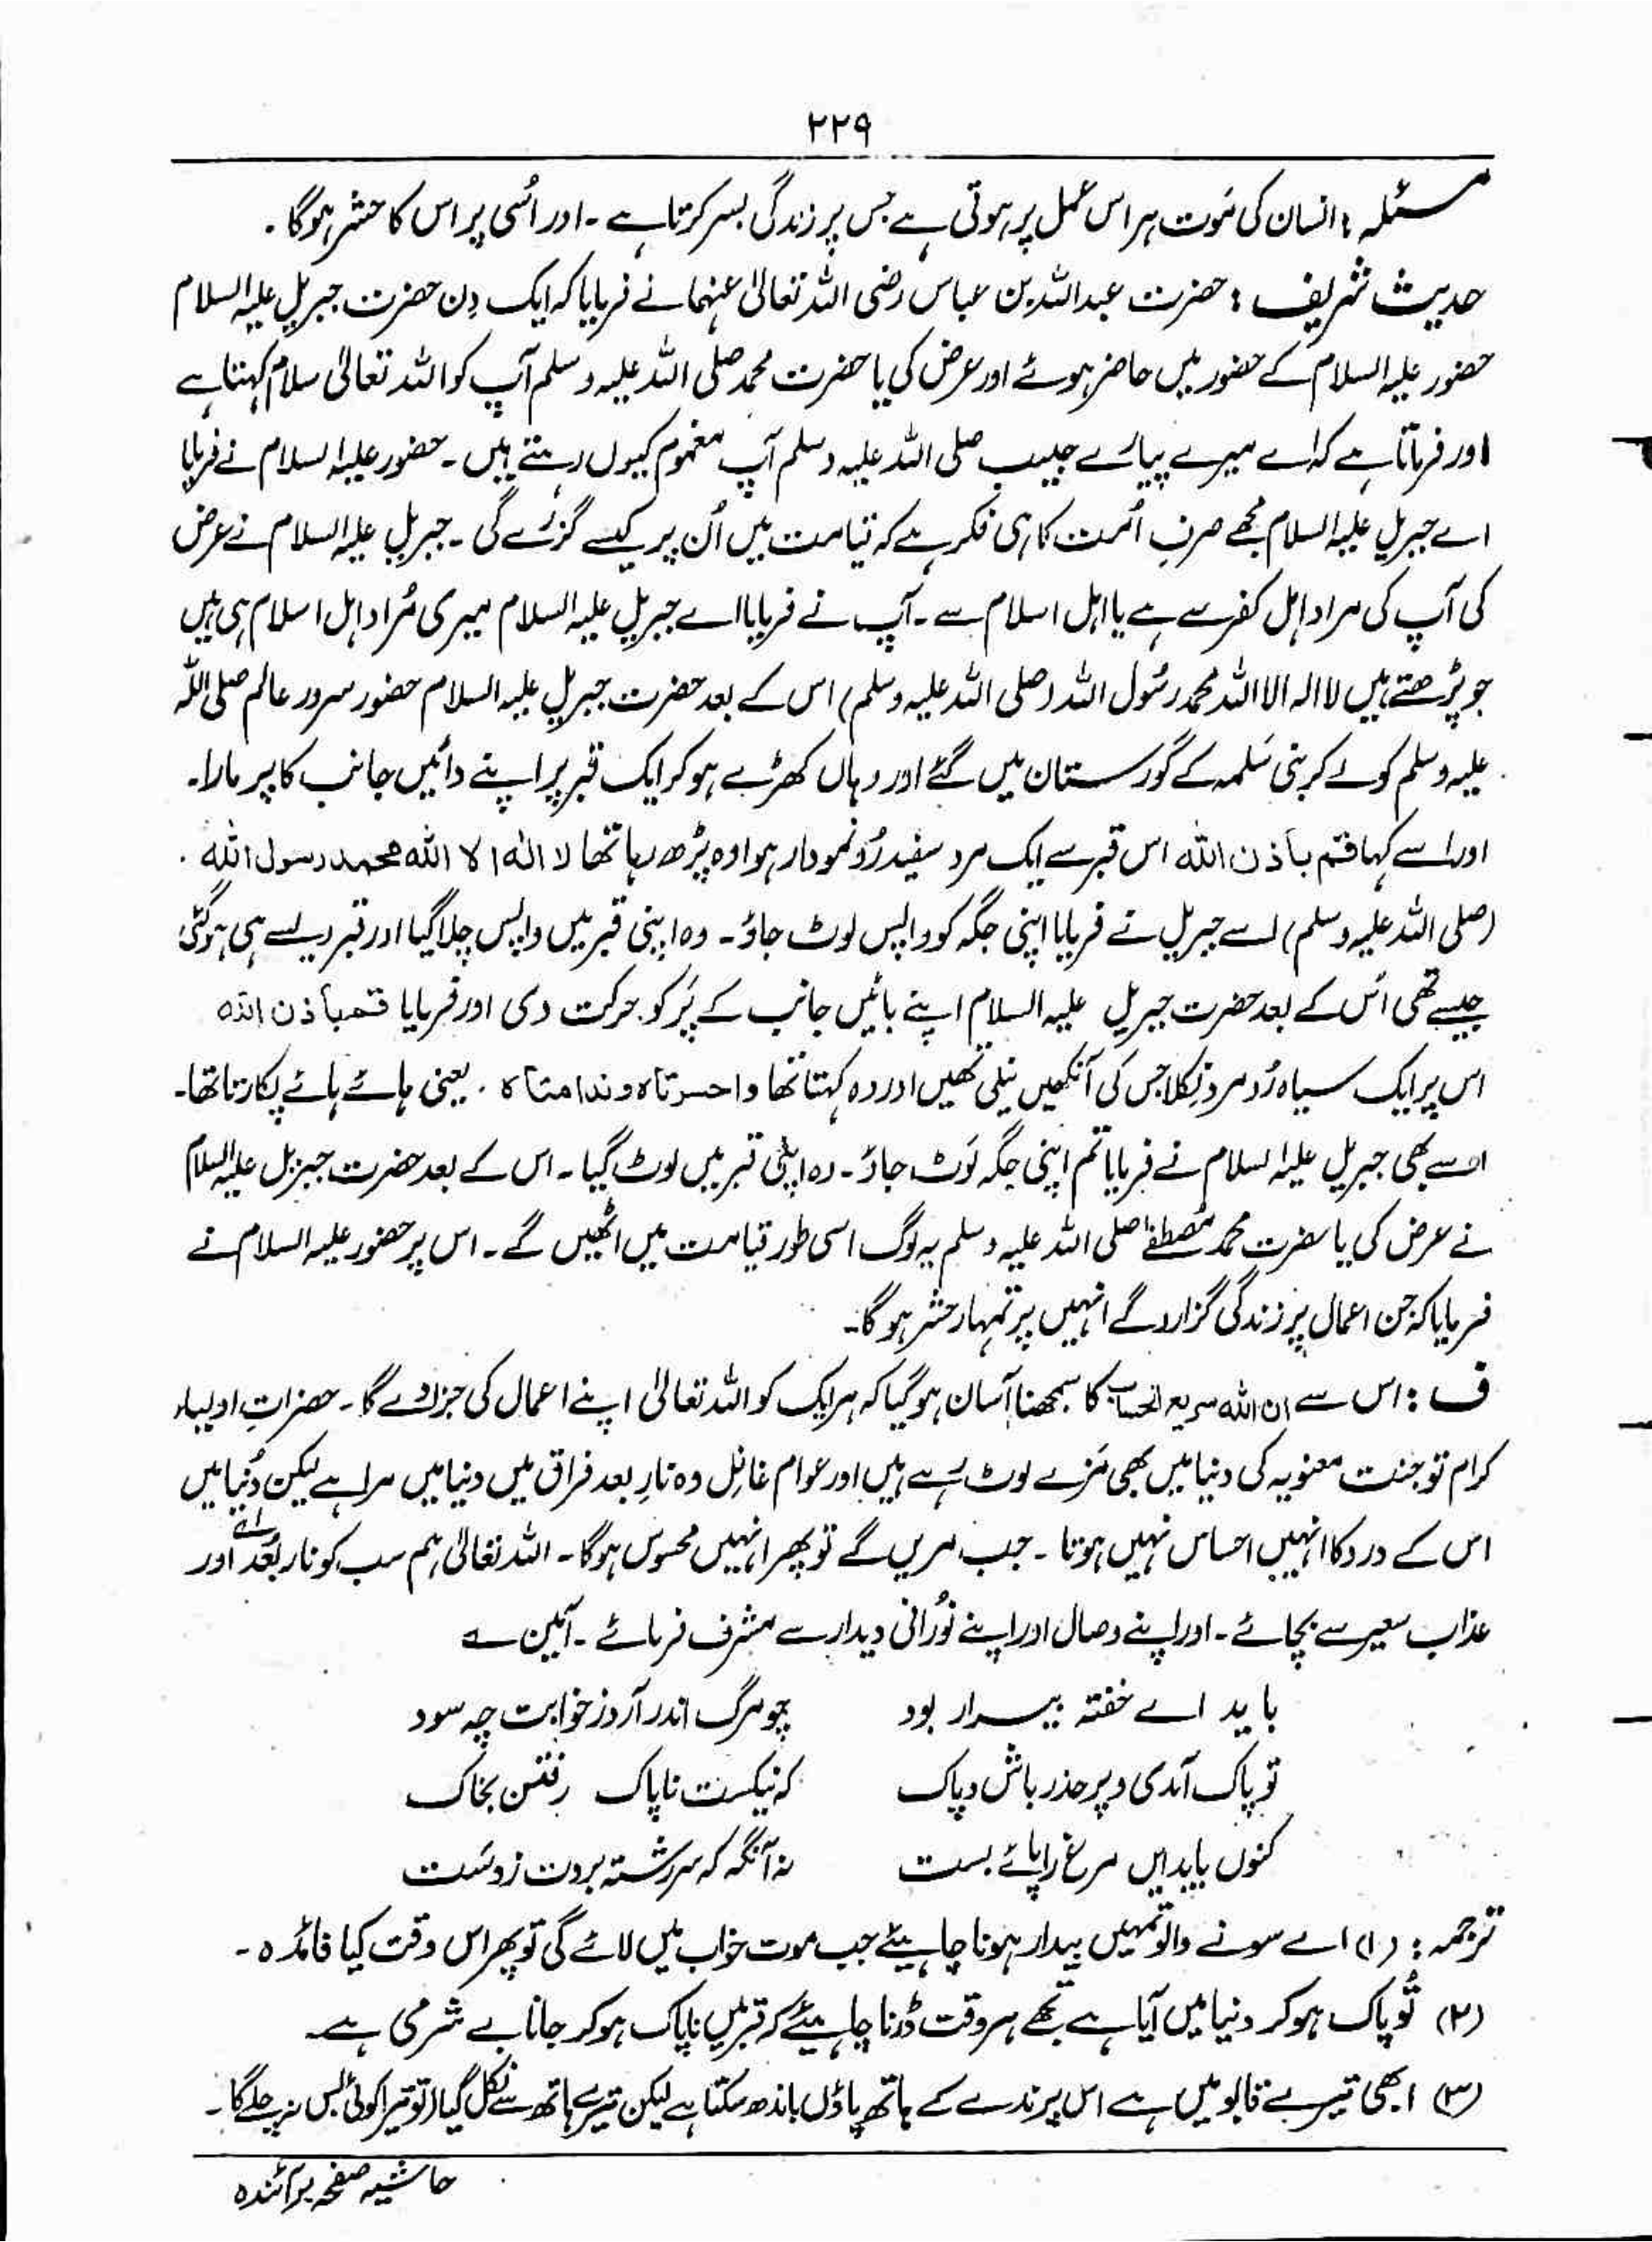 ۲۲۹
مسئلہ : انسان کی مَوت ہر اس عمل پر ہوتی ہے جس پر زندگی بسر کرتا ہے ۔ اور اُسی پر اس کا حشر ہوگا ۔
حدیث شریف : حضرت عبداللہ بن عباس رضی اللہ تعالیٰ عنہما نے فرمایا کہ ایک دِن حضرت جبریل علیہ السلام
حضور علیہ السلام کے حضور میں حاضر ہوئے اور عرض کی یا حضرت محمد صلی اللہ علیہ وسلم آپ کو اللہ تعالیٰ سلام کہتا ہے
اور فرماتا ہے کہ اے میرے پیارے حبیب صلی اللہ علیہ وسلم آپ مغموم کیوں رہتے ہیں ۔ حضور علیہ السلام نے فرمایا
اے جبریل علیہ السلام مجھے صرف اُمت کا ہی فکر ہے کہ قیامت میں اُن پر کیسے گزرے گی ۔ جبریل علیہ السلام نے عرض
کی آپ کی مراد اہل کفر سے ہے یا اہل اسلام سے ۔ آپ نے فرمایا اے جبریل علیہ السلام میری مُراد اہل اسلام ہی ہیں
جو پڑھتے ہیں لا الہ الا اللہ محمد رسُول اللہ (صلی اللہ علیہ وسلم) اس کے بعد حضرت جبریل علیہ السلام حضور سرور عالم صلی اللہ
علیہ وسلم کو لے کر بنی سَلمہ کے گورستان میں گئے اور وہاں کھڑے ہو کر ایک قبر پر اپنے دائیں جانب کا پر مارا۔
اور اسے کہا قتم بأذن اللہ اس قبر سے ایک مرد سفید رُو نمودار ہوا وہ پڑھ رہا تھا لا الٰہ الا اللہ محمد رسول اللہ ۔
(صلی اللہ علیہ وسلم) اسے جبریل نے فرمایا اپنی جگہ کو واپس لوٹ جاؤ ۔ وہ اپنی قبر میں واپس چلا گیا اور قبر ویسے ہی ہوگئی
جیسے تھی اُس کے بعد حضرت جبریل علیہ السلام اپنے بائیں جانب کے پَر کو حرکت دی اور فرمایا قم بأذن اللہ
اس پر ایک سیاہ رُو مرد نِکلا جس کی آنکھیں نیلی تھیں اور وہ کہتا تھا واحسرتاہ وندامتاہ ۔ یعنی ہائے ہائے پکارتا تھا۔
اوسے بھی جبریل علیہ السلام نے فرمایا تم اپنی جگہ لَوٹ جاؤ ۔ وہ اپنی قبر میں لوٹ گیا ۔ اس کے بعد حضرت جبریل علیہ السلام
نے عرض کی یا حضرت محمد مُصطفےٰ صلی اللہ علیہ وسلم یہ لوگ اسی طور قیامت میں اٹھیں گے ۔ اس پر حضور علیہ السلام نے
فرمایا کہ جن اعمال پر زندگی گزارو گے انہیں پر تمہار حشر ہو گا۔
ف : اس سے ان اللہ سریع الحساب کا سمجھنا آسان ہو گیا کہ ہر ایک کو اللہ تعالیٰ اپنے اعمال کی جزا دے گا ۔ حضراتِ اولیاء
کرام تو جنت معنویہ کی دنیا میں بھی مَزے لوٹ رہے ہیں اور عوام غافل وہ نارِ بعد فراق میں دنیا میں مرا ہے لیکن دُنیا میں
اس کے درد کا انہیں احساس نہیں ہوتا ۔ جب مریں گے تو پھر انہیں محسوس ہوگا ۔ اللہ تعالیٰ ہم سب کو نار بُعد اور
عذاب سعیر سے بچائے ۔ اور اپنے وصال اور اپنے نُورانی دیدار سے مشرف فرمائے ۔ آمین ؎
باید اے خفتہ بیدار بود چو مرگ اندر آرد ز خوابت چہ سود
تو پاک آمدی و پر حذر باش و پاک کہ نیکست ناپاک رفتن بخاک
کنوں باید ایں مرغ را پائے بست نہ آنگہ کہ سر رشتہ بردت ز دست
ترجمہ : (۱) اے سونے والو تمہیں بیدار ہونا چاہیئے جب موت خواب میں لائے گی تو پھر اس وقت کیا فائدہ ۔
(۲) تُو پاک ہو کر دنیا میں آیا ہے تجھے ہر وقت ڈرنا چاہیئے کہ قبر میں ناپاک ہو کر جانا بے شرمی ہے۔
(۳) ابھی تیرے قابو میں ہے اس پرندے کے ہاتھ پاؤں باندھ سکتا ہے لیکن تیرے ہاتھ سے نکل گیا تو تیرا کوئی بس نہ چلے گا ۔
حاشیہ صفحہ پر آئندہ